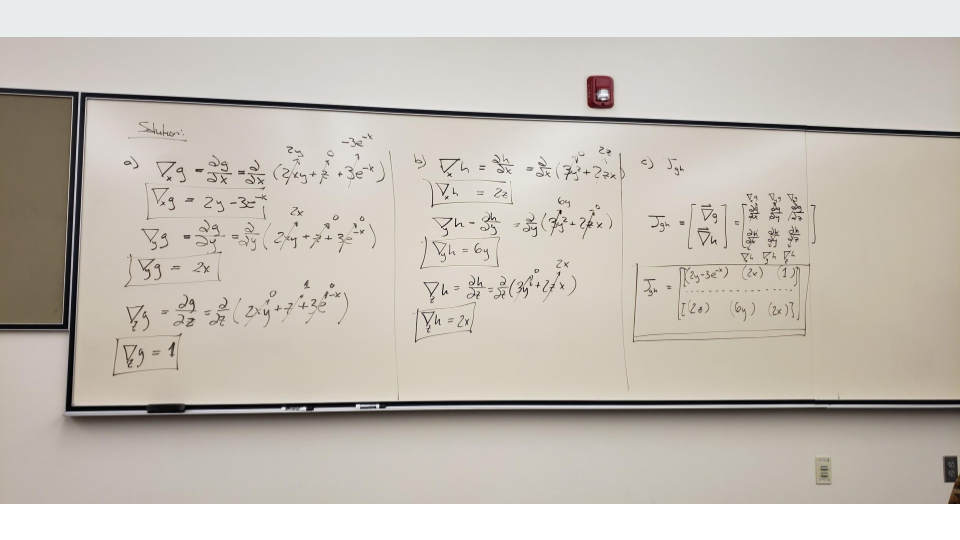 Solution:
a) ∇ₓg = ∂g/∂x = ∂/∂x (2xy + z + 3e^-x)
2y 0 -3e^-x
∇ₓg = 2y - 3e^-x
∇yg = ∂g/∂y = ∂/∂y (2xy + z + 3e^-x)
2x 0 0
∇yg = 2x
∇zg = ∂g/∂z = ∂/∂z (2xy + z + 3e^-x)
0 1 0
∇zg = 1
b) ∇ₓh = ∂h/∂x = ∂/∂x (3y² + 2zx)
0 2z
∇ₓh = 2z
∇yh = ∂h/∂y = ∂/∂y (3y² + 2zx)
6y 0
∇yh = 6y
∇zh = ∂h/∂z = ∂/∂z (3y² + 2zx)
0 2x
∇zh = 2x
c) J_gh
∇ₓg ∇yg ∇zg
J_gh = [∇g ∇h] = [∂g/∂x ∂g/∂y ∂g/∂z ∂h/∂x ∂h/∂y ∂h/∂z]
∇ₓh ∇yh ∇zh
J_gh = [[(2y-3e^-x) (2x) (1)]
[(2z) (6y) (2x)]]